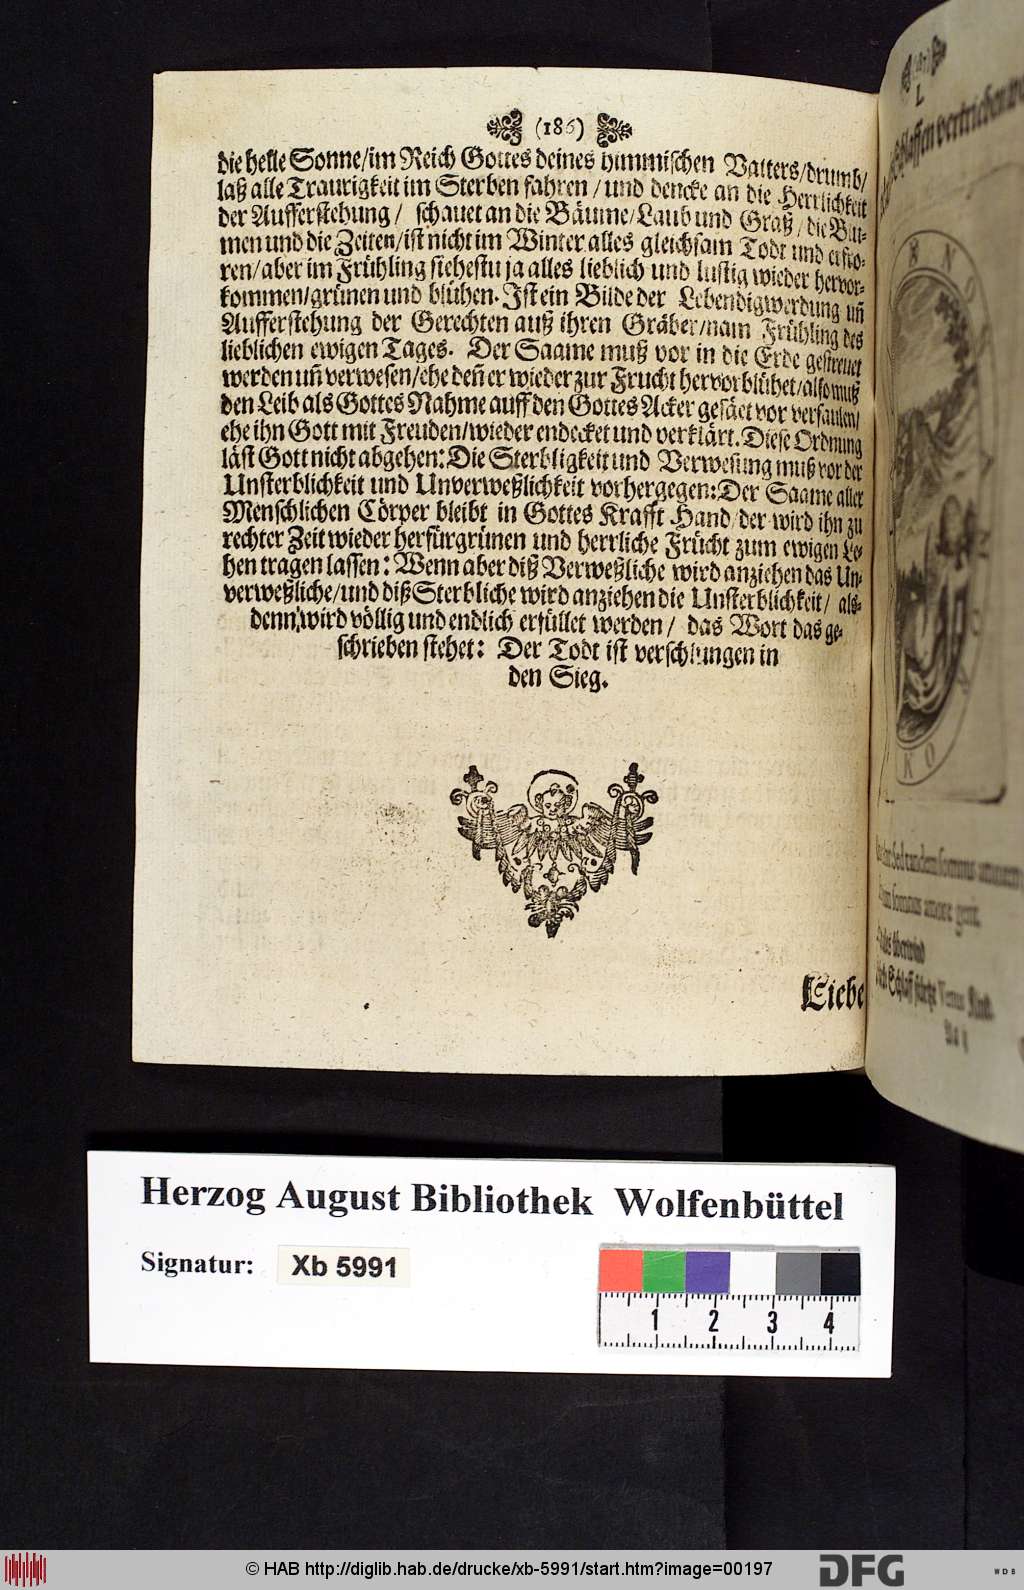 (186)
die helle Sonne/im Reich Gottes deines himmlischen Vatters/drumb/
laß alle Traurigkeit im Sterben fahren/ und dencke an die Herrlichkeit
der Aufferstehung/ schauet an die Bäume/Laub und Graß/die Blu-
men und die Zeiten/ist nicht im Winter alles gleichsam Todt und erfro-
ren/aber im Frühling siehestu ja alles lieblich und lustig wieder hervor-
kommen/grünen und blühen. Ist ein Bilde der Lebendigwerdung uñ
Aufferstehung der Gerechten auß ihren Gräber/nam Frühling des
lieblichen ewigen Tages. Der Saame muß vor in die Erde gestreuet
werden uñ verwesen/ehe deñ er wieder zur Frucht hervorblühet/also muß
den Leib als Gottes Nahme auff den Gottes Acker gesäet vor verfaulen/
ehe ihn Gott mit Freuden/wieder endecket und verklärt. Diese Ordnung
läst Gott nicht abgehen: Die Sterbligkeit und Verwesung muß vor der
Unsterblichkeit und Unverweßlichkeit vorhergegen: Der Saame aller
Menschlichen Cörper bleibt in Gottes Krafft Hand/der wird ihn zu
rechter Zeit wieder herfürgrünen und herrliche Frücht zum ewigen Le-
hen tragen lassen: Wenn aber diß Verweßliche wird anziehen das Un-
verweßliche/und diß Sterbliche wird anziehen die Unsterblichkeit/ als-
denn wird völlig und endlich erfüllet werden/ das Wort das ge-
schrieben stehet: Der Todt ist verschlungen in
den Sieg.
Liebe
L
Schlaffen vertrieben
Sed tandem somnus amorem
somnus amore gerit.
überwind
Schlaff stärkt Venus Kind.
Herzog August Bibliothek Wolfenbüttel
Signatur: Xb 5991
1 2 3 4
© HAB http://diglib.hab.de/drucke/xb-5991/start.htm?image=00197
DFG
WDB